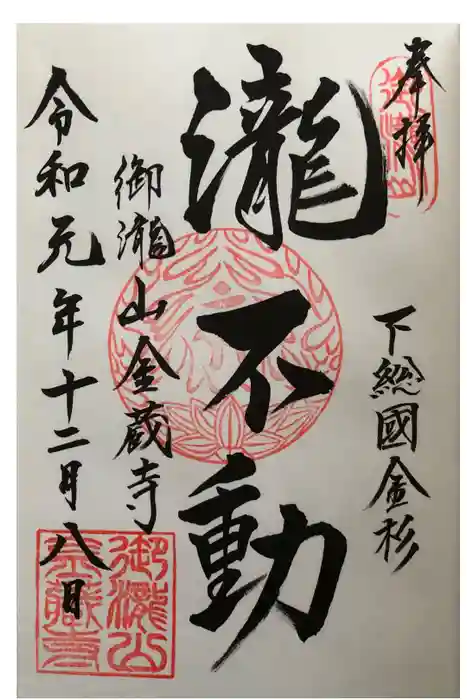 奉拝
下総國金杉
瀧不動
御瀧山金蔵寺
令和元年十二月八日
御瀧山
御瀧山
金蔵寺